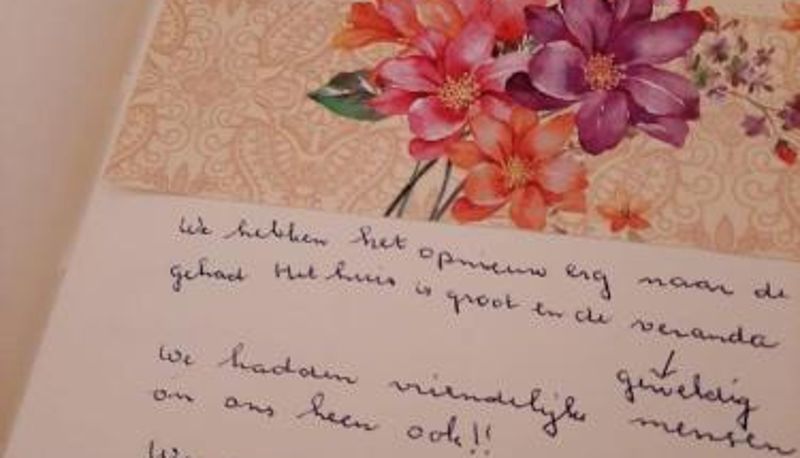 We hebben het opnieuw erg naar de
gehad Het huis is groot en de veranda
↓
geweldig
We hadden vriendelijke mensen
om ons heen ook!!